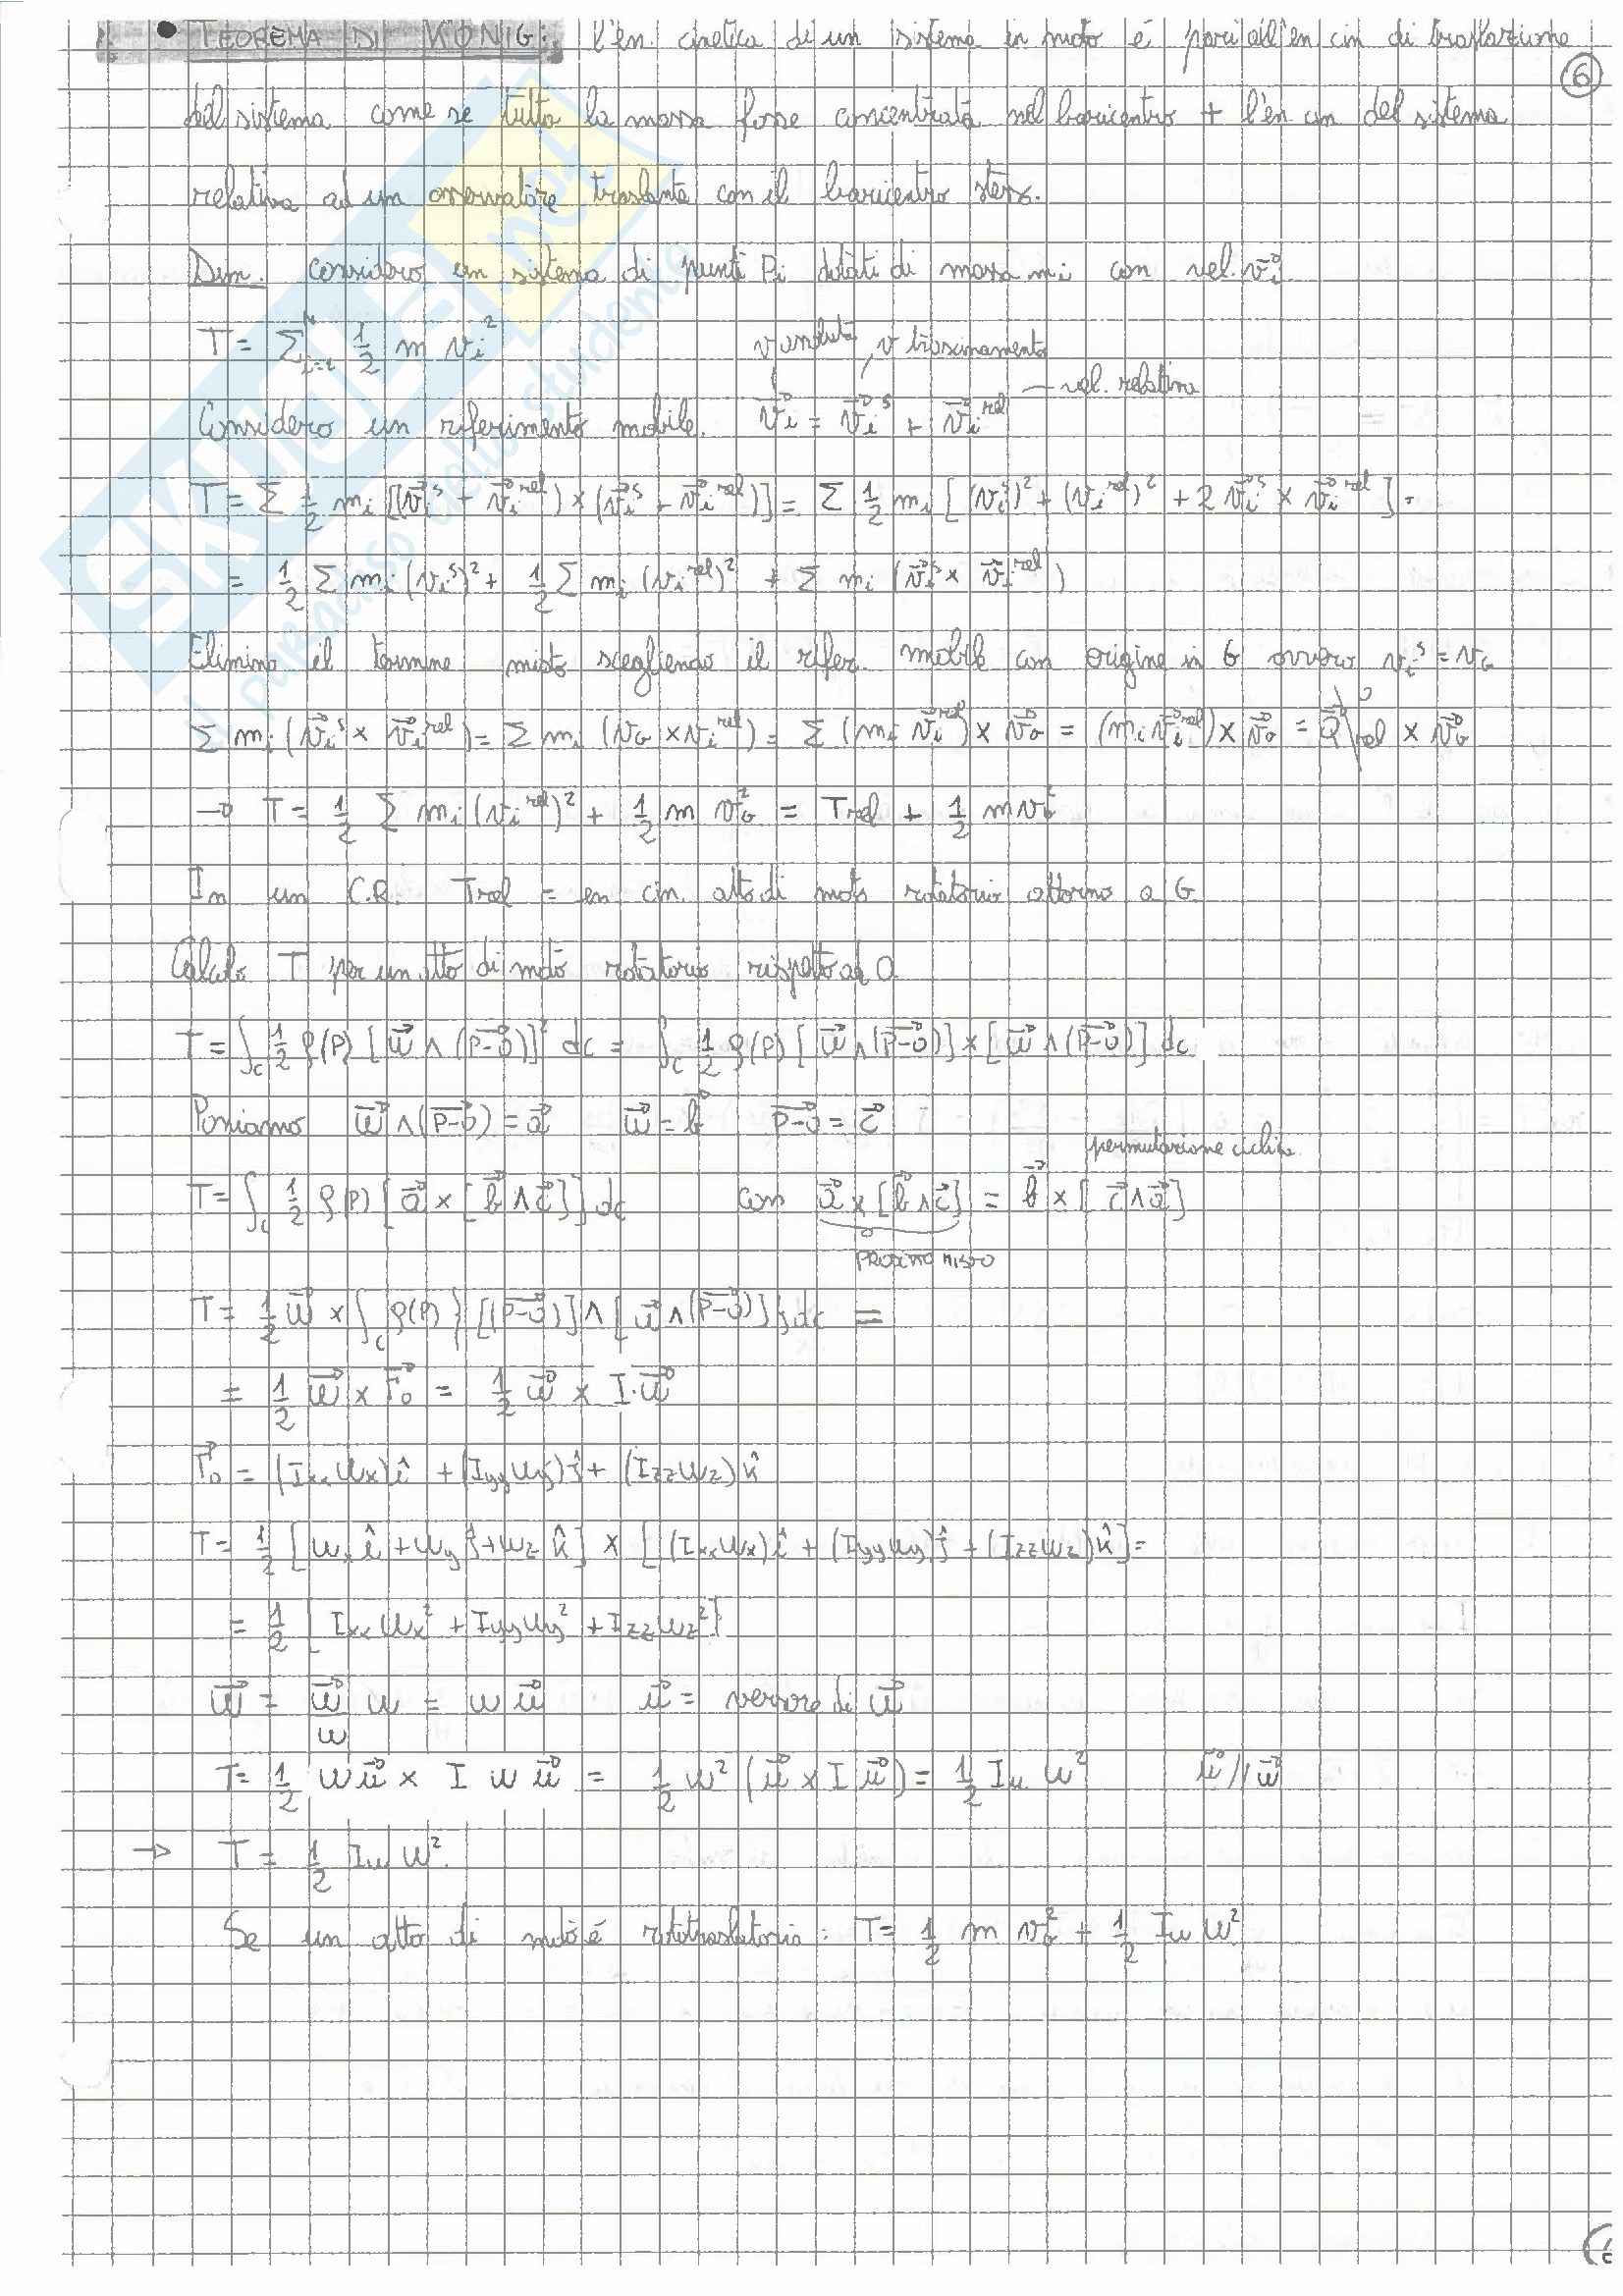 • TEOREMA DI KÖNIG: l'en. cinetica di un sistema in moto é pari all'en cin di traslazione
6
del sistema come se tutta la massa fosse concentrata nel baricentro + l'en cin del sistema
relativa ad un osservatore traslante con il baricentro stesso.
Dim. considero un sistema di punti Pi dotati di massa mi con vel. v⃗i
T = Σ_{i=1}^N 1/2 m vi²
v assoluta, v trascinamento
— vel. relativa
Considero un riferimento mobile. v⃗i = v⃗i^s + v⃗i^rel
T = Σ 1/2 mi [(v⃗i^s + v⃗i^rel) × (v⃗i^s + v⃗i^rel)] = Σ 1/2 mi [(vi^s)² + (vi^rel)² + 2 v⃗i^s × v⃗i^rel] =
= 1/2 Σ mi (vi^s)² + 1/2 Σ mi (vi^rel)² + Σ mi (v⃗i^s × v⃗i^rel)
Elimino il termine misto scegliendo il rifer. mobile con origine in G ovvero vi^s = vG
Σ mi (v⃗i^s × v⃗i^rel) = Σ mi (vG × vi^rel) = Σ (mi v⃗i^rel) × v⃗G = (mi v⃗i^rel) × v⃗G = Q⃗rel × v⃗G
0
→ T = 1/2 Σ mi (vi^rel)² + 1/2 m vG² = Trel + 1/2 m vG²
In un C.R. Trel = en cin. atto di moto rotatorio attorno a G.
Calcolo T per un atto di moto rotatorio rispetto ad O.
T = ∫c 1/2 ρ(P) [w⃗ ∧ (P-O)]² dc = ∫c 1/2 ρ(P) [w⃗ ∧ (P-O)] × [w⃗ ∧ (P-O)] dc
Poniamo w⃗ ∧ (P-O) = a⃗ w⃗ = b⃗ P-O = c⃗
permutazione ciclica
T = ∫c 1/2 ρ(P) [a⃗ × [b⃗ ∧ c⃗]] dc con a⃗ × [b⃗ ∧ c⃗] = b⃗ × [c⃗ ∧ a⃗]
PRODOTTO MISTO
T = 1/2 w⃗ × ∫c ρ(P) {[(P-O)] ∧ [w⃗ ∧ (P-O)]} dc =
= 1/2 w⃗ × Γ⃗o = 1/2 w⃗ × I·w⃗
Γ⃗o = (Ixx wx) î + (Iyy wy) ĵ + (Izz wz) k̂
T = 1/2 [wx î + wy ĵ + wz k̂] × [(Ixx wx) î + (Iyy wy) ĵ + (Izz wz) k̂] =
= 1/2 [Ixx wx² + Iyy wy² + Izz wz²]
w⃗ = w⃗/w w = w u⃗ u⃗ = versore di w⃗
T = 1/2 w u⃗ × I w u⃗ = 1/2 w² (u⃗ × I u⃗) = 1/2 Iu w² u⃗ // w⃗
→ T = 1/2 Iu w².
Se un atto di moto é rototraslatorio: T = 1/2 m vG² + 1/2 Iu w²